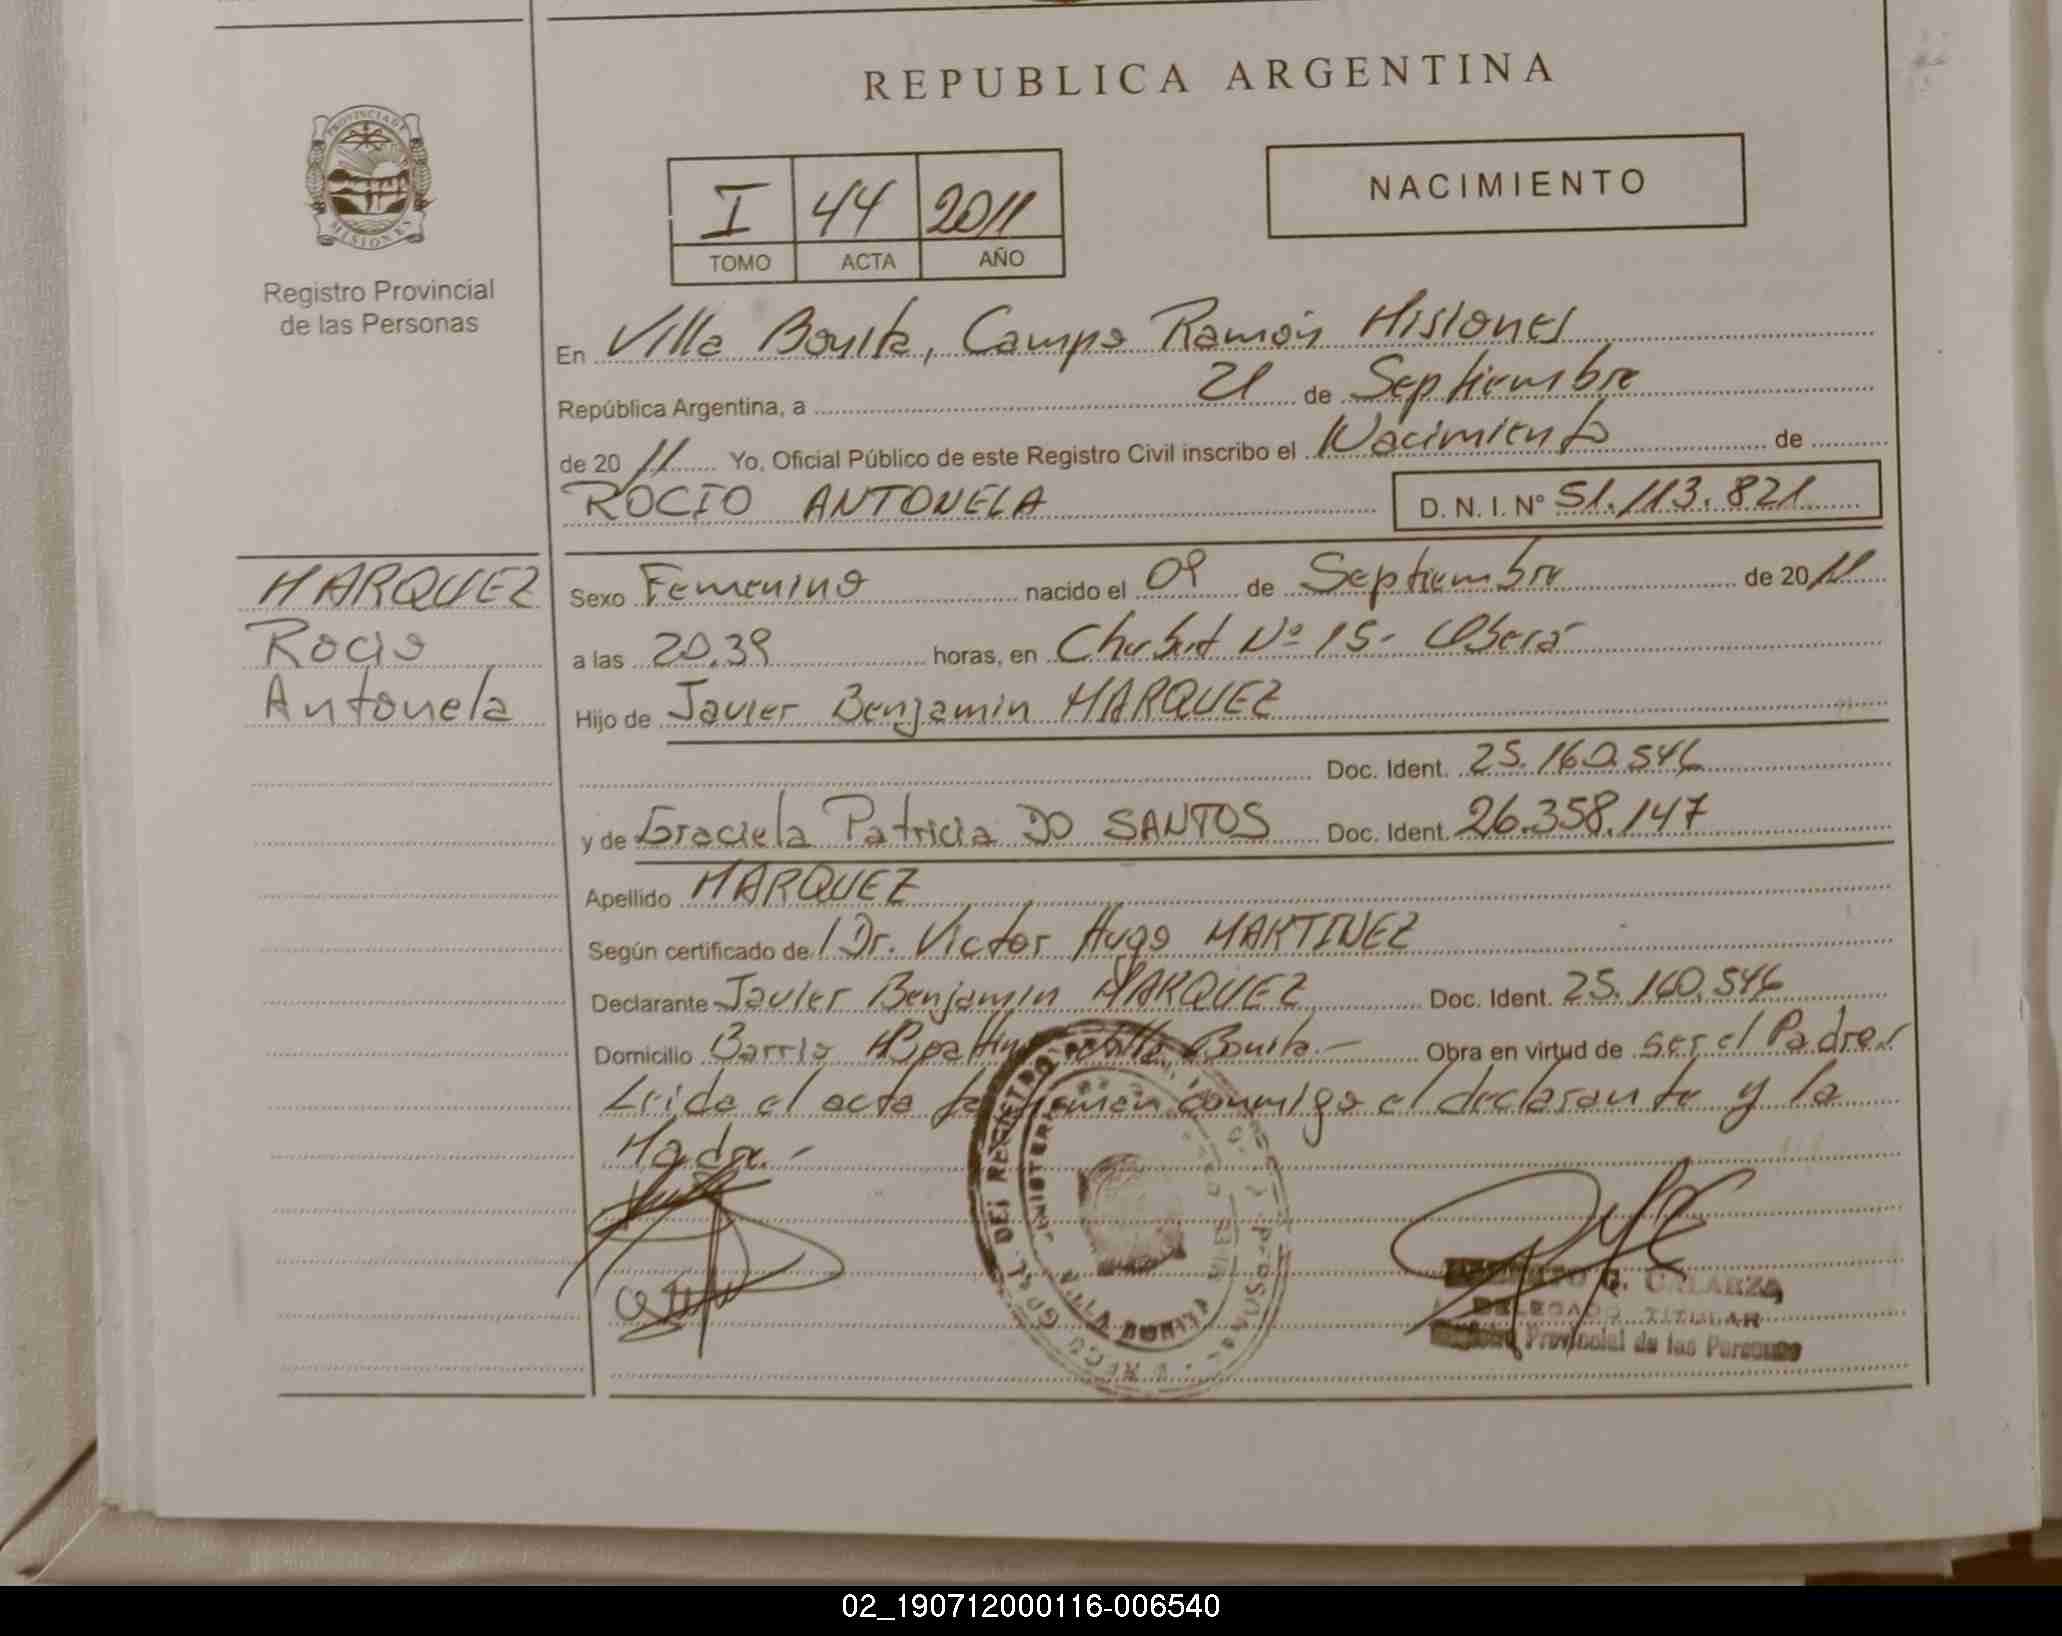 REPUBLICA ARGENTINA
PROVINCIA DE
MISIONES
Registro Provincial
de las Personas
I 44 2011
TOMO ACTA AÑO
NACIMIENTO
En Villa Bonita, Campo Ramón Misiones
República Argentina, a 21 de Septiembre
de 2011 Yo, Oficial Público de este Registro Civil inscribo el Nacimiento de
ROCIO ANTONELA D. N. I. Nº 51.113.821
MARQUEZ
Rocio
Antonela
Sexo Femenino nacido el 09 de Septiembre de 2011
a las 20.39 horas, en Chubut Nº 15- Oberá
Hijo de Javier Benjamin MARQUEZ
Doc. Ident. 25.160.546
y de Graciela Patricia DO SANTOS Doc. Ident. 26.358.147
Apellido MARQUEZ
Según certificado de Dr. Victor Hugo MARTINEZ
Declarante Javier Benjamin MARQUEZ Doc. Ident. 25.160.546
Domicilio Barrio Villa Bonita.- Obra en virtud de ser el Padre.
Leida el acta la firman conmigo el declarante y la
Madre.-
DEL REGISTRO
MINISTERIO
VILLA BONITA
G. GALARZA
DELEGADO TITULAR
Provincial de las Personas
02_190712000116-006540